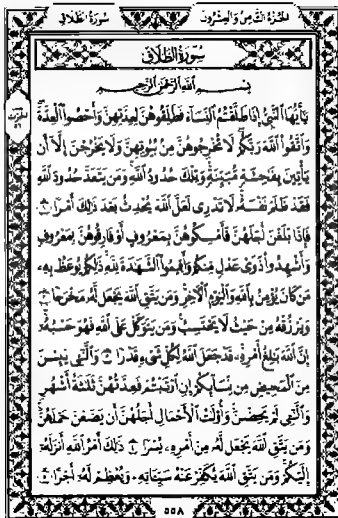 الجُزْءُ الثَّامِنُ وَالعِشْرُونَ سُورَةُ الطَّلَاقِ
سُورَةُ الطَّلَاقِ
بِسْمِ اللَّهِ الرَّحْمَٰنِ الرَّحِيمِ
يَٰٓأَيُّهَا ٱلنَّبِىُّ إِذَا طَلَّقْتُمُ ٱلنِّسَآءَ فَطَلِّقُوهُنَّ لِعِدَّتِهِنَّ وَأَحْصُوا۟ ٱلْعِدَّةَ
وَٱتَّقُوا۟ ٱللَّهَ رَبَّكُمْ لَا تُخْرِجُوهُنَّ مِنۢ بُيُوتِهِنَّ وَلَا يَخْرُجْنَ إِلَّآ أَن
يَأْتِينَ بِفَٰحِشَةٍ مُّبَيِّنَةٍ وَتِلْكَ حُدُودُ ٱللَّهِ وَمَن يَتَعَدَّ حُدُودَ ٱللَّهِ
فَقَدْ ظَلَمَ نَفْسَهُۥ لَا تَدْرِى لَعَلَّ ٱللَّهَ يُحْدِثُ بَعْدَ ذَٰلِكَ أَمْرًا ١
فَإِذَا بَلَغْنَ أَجَلَهُنَّ فَأَمْسِكُوهُنَّ بِمَعْرُوفٍ أَوْ فَارِقُوهُنَّ بِمَعْرُوفٍ
وَأَشْهِدُوا۟ ذَوَىْ عَدْلٍ مِّنكُمْ وَأَقِيمُوا۟ ٱلشَّهَٰدَةَ لِلَّهِ ذَٰلِكُمْ يُوعَظُ بِهِۦ
مَن كَانَ يُؤْمِنُ بِٱللَّهِ وَٱلْيَوْمِ ٱلْءَاخِرِ وَمَن يَتَّقِ ٱللَّهَ يَجْعَل لَّهُۥ مَخْرَجًا ٢
وَيَرْزُقْهُ مِنْ حَيْثُ لَا يَحْتَسِبُ وَمَن يَتَوَكَّلْ عَلَى ٱللَّهِ فَهُوَ حَسْبُهُۥٓ
إِنَّ ٱللَّهَ بَٰلِغُ أَمْرِهِۦ قَدْ جَعَلَ ٱللَّهُ لِكُلِّ شَىْءٍ قَدْرًا ٣ وَٱلَّٰٓـِٔى يَئِسْنَ
مِنَ ٱلْمَحِيضِ مِن نِّسَآئِكُمْ إِنِ ٱرْتَبْتُمْ فَعِدَّتُهُنَّ ثَلَٰثَةُ أَشْهُرٍ
وَٱلَّٰٓـِٔى لَمْ يَحِضْنَ وَأُو۟لَٰتُ ٱلْأَحْمَالِ أَجَلُهُنَّ أَن يَضَعْنَ حَمْلَهُنَّ
وَمَن يَتَّقِ ٱللَّهَ يَجْعَل لَّهُۥ مِنْ أَمْرِهِۦ يُسْرًا ٤ ذَٰلِكَ أَمْرُ ٱللَّهِ أَنزَلَهُۥٓ
إِلَيْكُمْ وَمَن يَتَّقِ ٱللَّهَ يُكَفِّرْ عَنْهُ سَيِّـَٔاتِهِۦ وَيُعْظِمْ لَهُۥٓ أَجْرًا ٥
٥٥٨